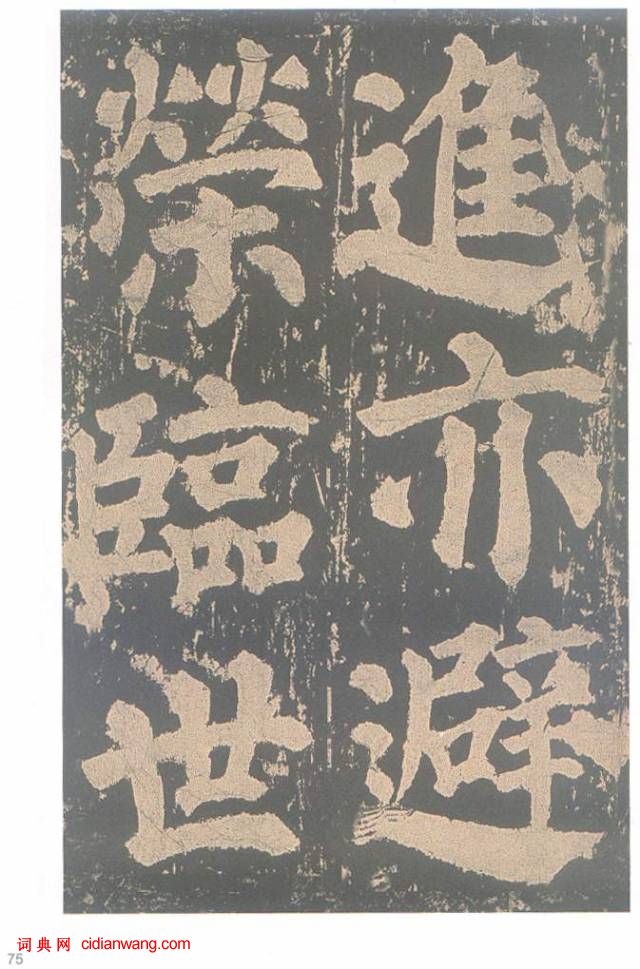 進亦避
榮臨世
词典网 cidianwang.com
75